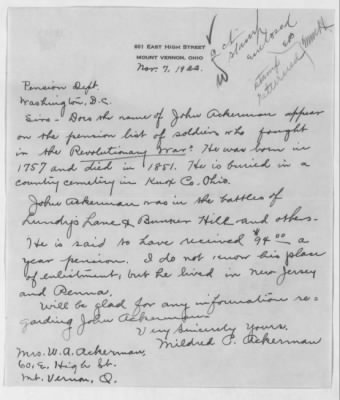 601 EAST HIGH STREET
MOUNT VERNON, OHIO
Nov. 7, 1922.
act
stamp
enclosed
stamp
returned
Pension Dept.
Washington, D.C.
Sirs:- Does the name of John Ackerman appear
on the pension list of soldiers who fought
in the Revolutionary War? He was born in
1757 and died in 1851. He is buried in a
country cemetery in Knox Co. Ohio.
John Ackerman was in the battles of
Lundy's Lane & Bunker Hill and others.
He is said to have received $94.00 a
year pension. I do not know his place
of enlistment, but he lived in New Jersey
and Penna.
Will be glad for any information re-
garding John Ackerman.
Very Sincerely Yours,
Mildred P. Ackerman
Mrs. W. A. Ackerman,
601 E. High St.
Mt. Vernon, O.